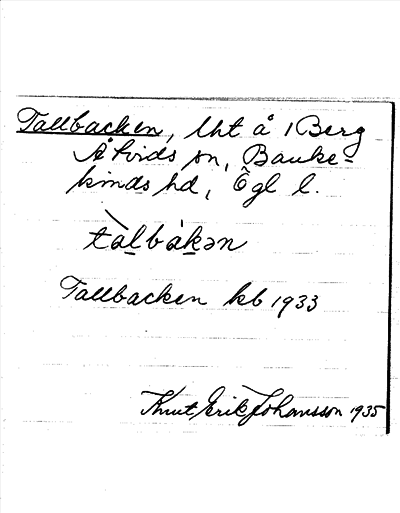 Tallbacken, lht å 1 Berg
Åtvids sn, Banke-
kinds hd, Ögl l.
tàlbákən
Tallbacken kb 1933
Knut Erik Johansson 1935